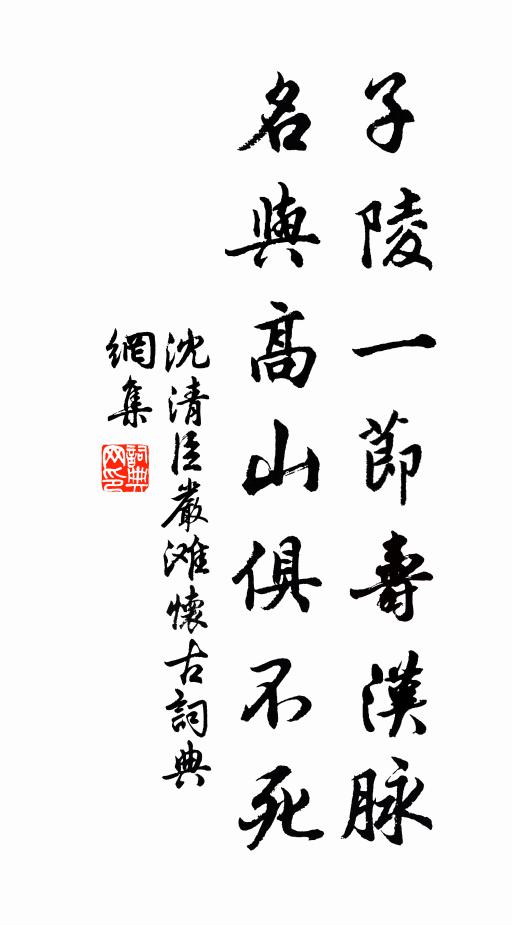 子陵一節壽漢脉
名與高山俱不死
沈清臣嚴滩懷古詞典
網集
詞典網印